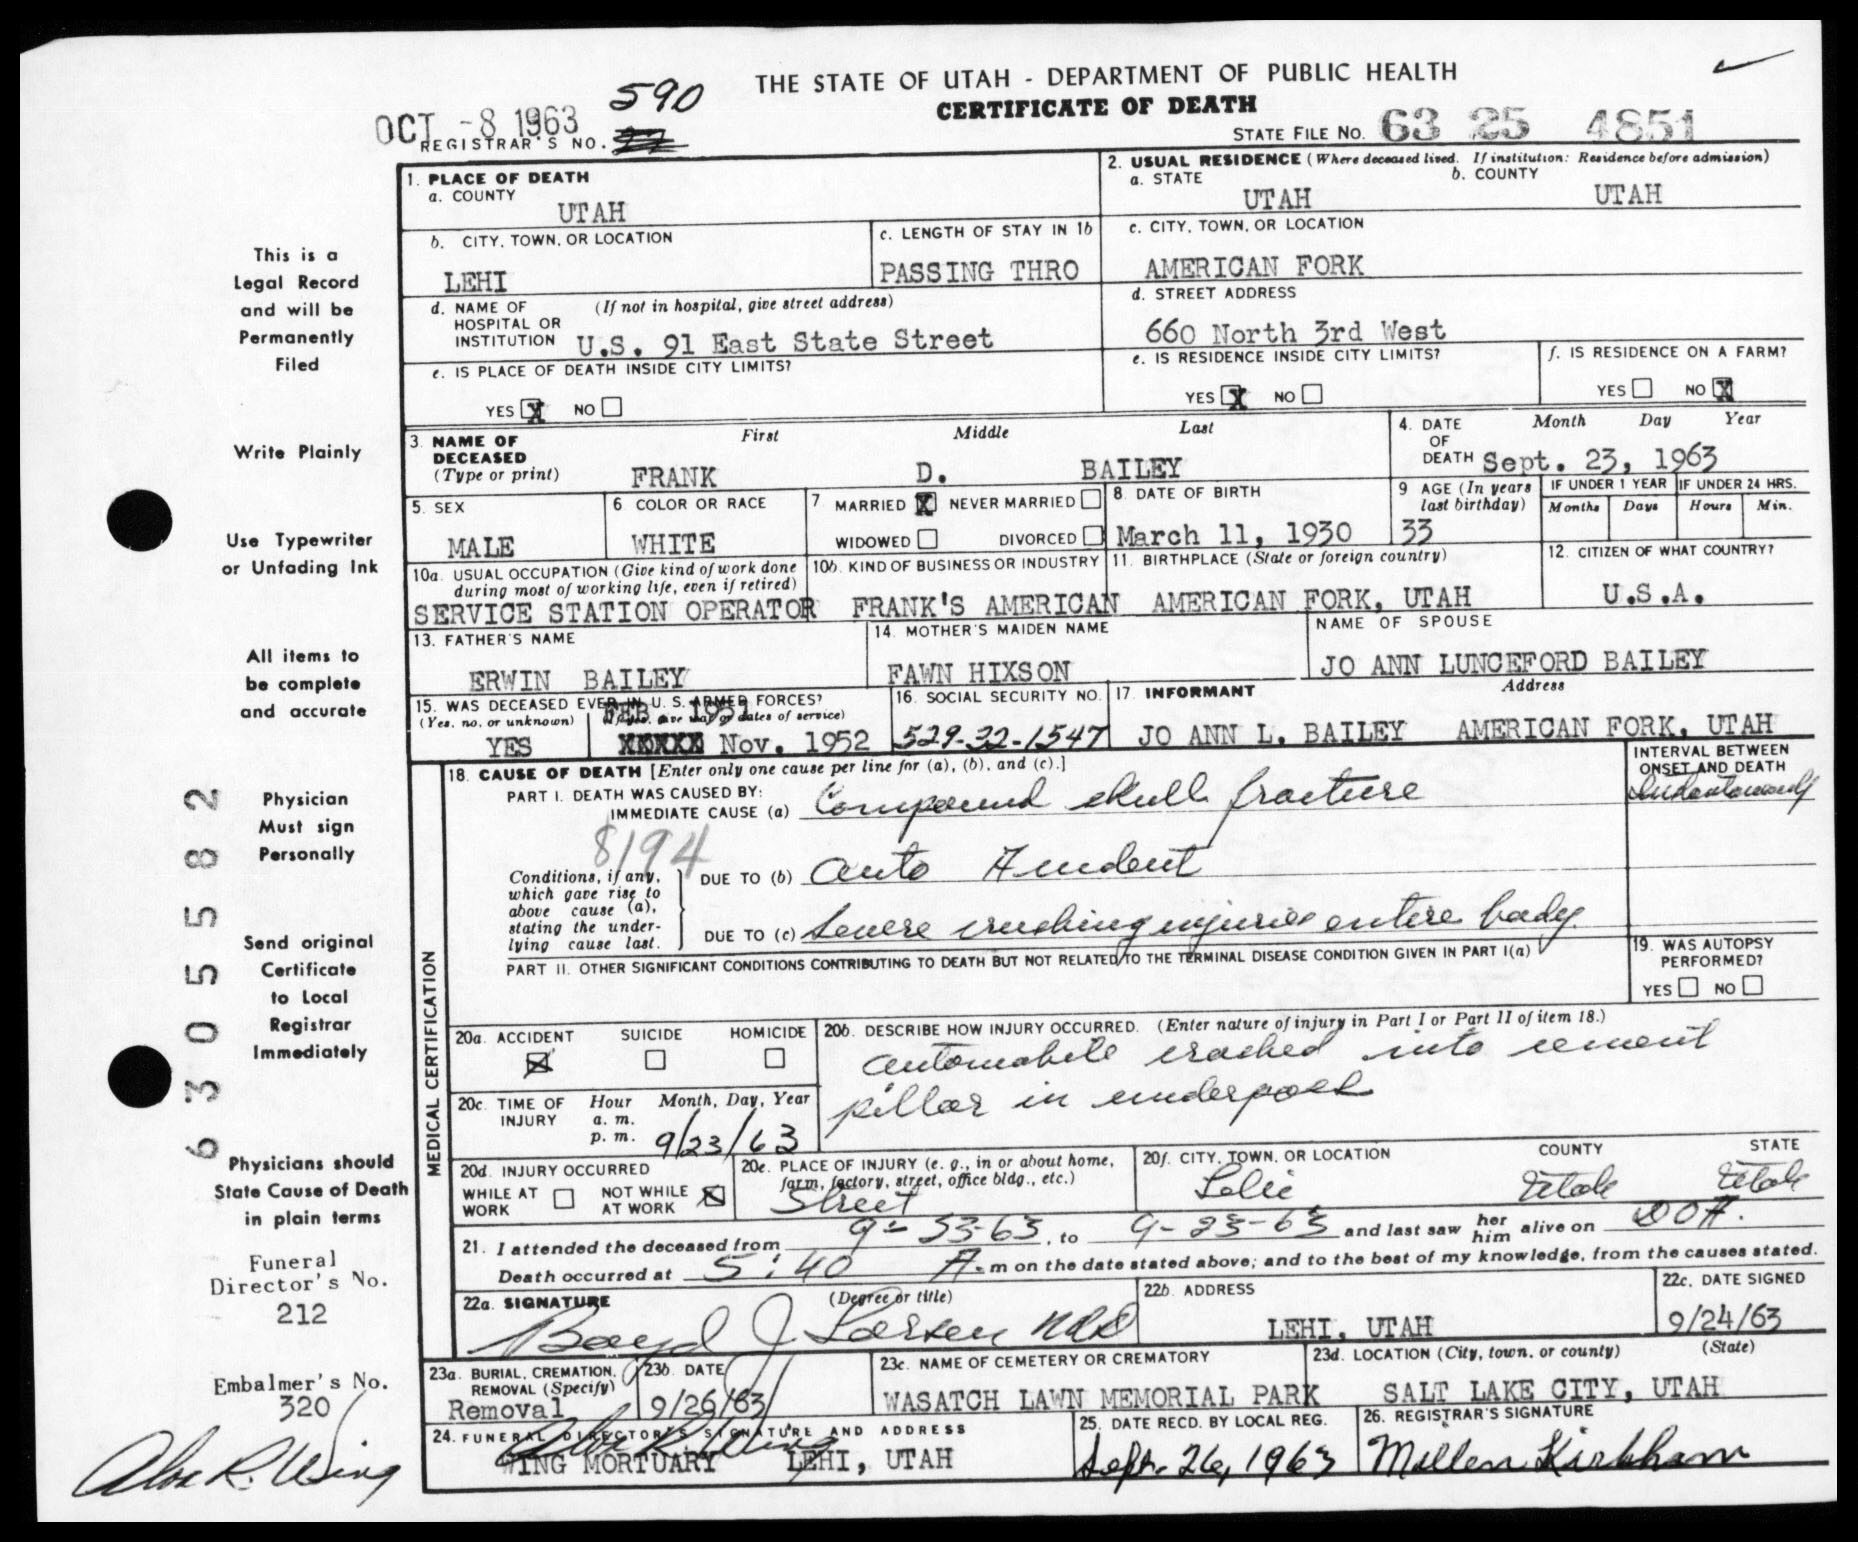 THE STATE OF UTAH - DEPARTMENT OF PUBLIC HEALTH
CERTIFICATE OF DEATH
OCT -8 1963
590
REGISTRAR'S NO.
STATE FILE NO. 63 25 4851
This is a
Legal Record
and will be
Permanently
Filed
Write Plainly
Use Typewriter
or Unfading Ink
All items to
be complete
and accurate
Physician
Must sign
Personally
Send original
Certificate
to Local
Registrar
Immediately
Physicians should
State Cause of Death
in plain terms
Funeral
Director's No.
212
Embalmer's No.
320
63055582
1. PLACE OF DEATH
a. COUNTY
UTAH
b. CITY, TOWN, OR LOCATION
LEHI
c. LENGTH OF STAY IN 1b
PASSING THRO
d. NAME OF HOSPITAL OR INSTITUTION
(If not in hospital, give street address)
U.S. 91 East State Street
e. IS PLACE OF DEATH INSIDE CITY LIMITS?
YES X NO
2. USUAL RESIDENCE (Where deceased lived. If institution: Residence before admission)
a. STATE
UTAH
b. COUNTY
UTAH
c. CITY, TOWN, OR LOCATION
AMERICAN FORK
d. STREET ADDRESS
660 North 3rd West
e. IS RESIDENCE INSIDE CITY LIMITS?
YES X NO
f. IS RESIDENCE ON A FARM?
YES NO X
3. NAME OF DECEASED
(Type or print)
First Middle Last
FRANK D. BAILEY
4. DATE OF DEATH
Month Day Year
Sept. 23, 1963
5. SEX
MALE
6 COLOR OR RACE
WHITE
7 MARRIED X NEVER MARRIED
WIDOWED DIVORCED
8. DATE OF BIRTH
March 11, 1930
9 AGE (In years last birthday)
33
IF UNDER 1 YEAR
Months Days
IF UNDER 24 HRS.
Hours Min.
10a. USUAL OCCUPATION (Give kind of work done during most of working life, even if retired)
SERVICE STATION OPERATOR
10b. KIND OF BUSINESS OR INDUSTRY
FRANK'S AMERICAN
11. BIRTHPLACE (State or foreign country)
AMERICAN FORK, UTAH
12. CITIZEN OF WHAT COUNTRY?
U.S.A.
13. FATHER'S NAME
ERWIN BAILEY
14. MOTHER'S MAIDEN NAME
FAWN HIXSON
NAME OF SPOUSE
JO ANN LUNCEFORD BAILEY
15. WAS DECEASED EVER IN U.S. ARMED FORCES?
(Yes, no, or unknown) (If yes, give war or dates of service)
YES
FEB 1951
XXXXX Nov. 1952
16. SOCIAL SECURITY NO.
529-32-1547
17. INFORMANT Address
JO ANN L. BAILEY AMERICAN FORK, UTAH
MEDICAL CERTIFICATION
18. CAUSE OF DEATH [Enter only one cause per line for (a), (b), and (c).]
INTERVAL BETWEEN ONSET AND DEATH
PART I. DEATH WAS CAUSED BY:
IMMEDIATE CAUSE (a) Compound skull fracture
8194
Conditions, if any,
which gave rise to
above cause (a),
stating the under-
lying cause last.
DUE TO (b) Auto Accident
DUE TO (c) Severe crushing injuries entire body
PART II. OTHER SIGNIFICANT CONDITIONS CONTRIBUTING TO DEATH BUT NOT RELATED TO THE TERMINAL DISEASE CONDITION GIVEN IN PART I(a)
19. WAS AUTOPSY PERFORMED?
YES NO
20a. ACCIDENT SUICIDE HOMICIDE
X
20b. DESCRIBE HOW INJURY OCCURRED. (Enter nature of injury in Part I or Part II of item 18.)
Automobile crashed into cement
pillar in underpass
20c. TIME OF INJURY
Hour Month, Day, Year
a. m.
p. m. 9/23/63
20d. INJURY OCCURRED
WHILE AT WORK NOT WHILE AT WORK X
20e. PLACE OF INJURY (e. g., in or about home, farm, factory, street, office bldg., etc.)
Street
20f. CITY, TOWN, OR LOCATION COUNTY STATE
Lehi Utah Utah
21. I attended the deceased from 9-23-63, to 9-23-63 and last saw her him alive on DOA.
Death occurred at 5:40 A.m on the date stated above; and to the best of my knowledge, from the causes stated.
22a. SIGNATURE (Degree or title)
Boyd J Larsen MD
22b. ADDRESS
LEHI, UTAH
22c. DATE SIGNED
9/24/63
23a. BURIAL, CREMATION, REMOVAL (Specify)
Removal
23b. DATE
9/26/63
23c. NAME OF CEMETERY OR CREMATORY
WASATCH LAWN MEMORIAL PARK
23d. LOCATION (City, town, or county) (State)
SALT LAKE CITY, UTAH
24. FUNERAL DIRECTOR'S SIGNATURE AND ADDRESS
WING MORTUARY LEHI, UTAH
25. DATE RECD. BY LOCAL REG.
Sept. 26, 1963
26. REGISTRAR'S SIGNATURE
Kirkham